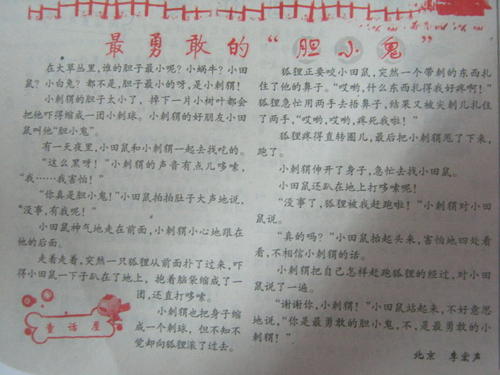 最勇敢的“胆小鬼”
在大草丛里,谁的胆子最小呢?小蜗牛?小田
鼠?小白兔?都不是,胆子最小的呀,是小刺猬!
小刺猬的胆子太小了,掉下一片小树叶都会
把他吓得缩成一团小刺球。小刺猬的好朋友小田
鼠叫他“胆小鬼”。
有一天夜里,小田鼠和小刺猬一起去找吃的。
“这么黑呀!”小刺猬的声音有点儿哆嗦,
“我……我害怕!”
“你真是胆小鬼!”小田鼠拍拍肚子大声地说,
“没事,有我呢!”
小田鼠神气地走在前面,小刺猬小心地跟在
他的后面。
走着走着,突然一只狐狸从前面扑了过来,吓
得小田鼠一下子趴在了地上,抱着脑袋缩成了一
团,还直打哆嗦。
小刺猬也把身子缩
成一个刺球,但不知不
觉却向狐狸滚了过去。
童话屋
狐狸正要咬小田鼠,突然一个带刺的东西扎
住了他的鼻子。“哎哟,什么东西扎得我好疼啊!”
狐狸急忙用两手去捂鼻子,结果又被尖刺儿扎住
了两手,“哎哟,哎哟,疼死我啦!”
狐狸疼得直转圈儿,最后把小刺猬甩了下来,
跑了。
小刺猬伸开了身子,急忙去找小田鼠。
小田鼠还趴在地上打哆嗦呢!
“没事了,狐狸被我赶跑啦!”小刺猬对小田
鼠说。
“真的吗?”小田鼠抬起头来,害怕地四处看
看,不相信小刺猬的话。
小刺猬把自己怎样赶跑狐狸的经过,对小田
鼠说了一遍。
“谢谢你,小刺猬!”小田鼠站起来,不好意思
地说,“你是最勇敢的胆小鬼,不,是最勇敢的小
刺猬!”
北京 李宏声